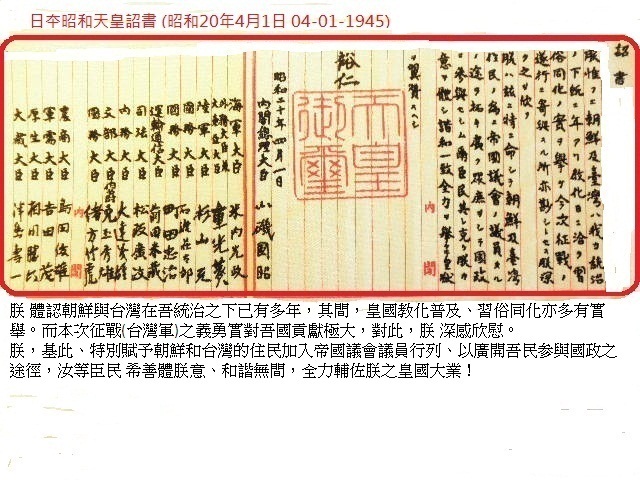 日夲昭和天皇詔書 (昭和20年4月1日 04-01-1945)
詔書
朕惟フニ朝鮮及臺灣ハ我カ統治
ノ下既ニ年アリ敎化日ニ洽ク習
俗同化ノ實ヲ擧ケ今次征戰ノ
遂行ニ寄與スル所亦尠シトセス朕深
ク之ヲ欣フ
朕ハ茲ニ特ニ命シテ朝鮮及臺灣
住民ノ爲ニ帝國議會ノ議員タルノ
途ヲ拓キ廣ク衆庶ヲシテ國政
ニ參與セシム爾臣民其レ克ク朕カ
意ヲ體シ諧和一致全力ヲ擧ケテ
ヲ翼贊スヘシ
内閣
裕仁
天皇御璽
昭和二十年四月一日
内閣總理大臣 小磯國昭
海軍大臣 米内光政
外務大臣 重光葵
陸軍大臣 杉山元
國務大臣 石渡莊太郎
國務大臣 町田忠治
運輸通信大臣 前田米藏
司法大臣 松阪廣政
内務大臣 大達茂雄
文部大臣 兒玉秀雄
國務大臣 緒方竹虎
内閣
農商大臣 島田俊雄
軍需大臣 吉田茂
厚生大臣 相川勝六
大藏大臣 津島壽一
朕 體認朝鮮與台灣在吾統治之下已有多年，其間，皇國教化普及、習俗同化亦多有實
舉。而本次征戰(台灣軍)之義勇實對吾國貢獻極大，對此，朕 深感欣慰。
朕，基此、特別賦予朝鮮和台灣的住民加入帝國議會議員行列、以廣開吾民參與國政之
途徑，汝等臣民 希善體朕意、和諧無間，全力輔佐朕之皇國大業！